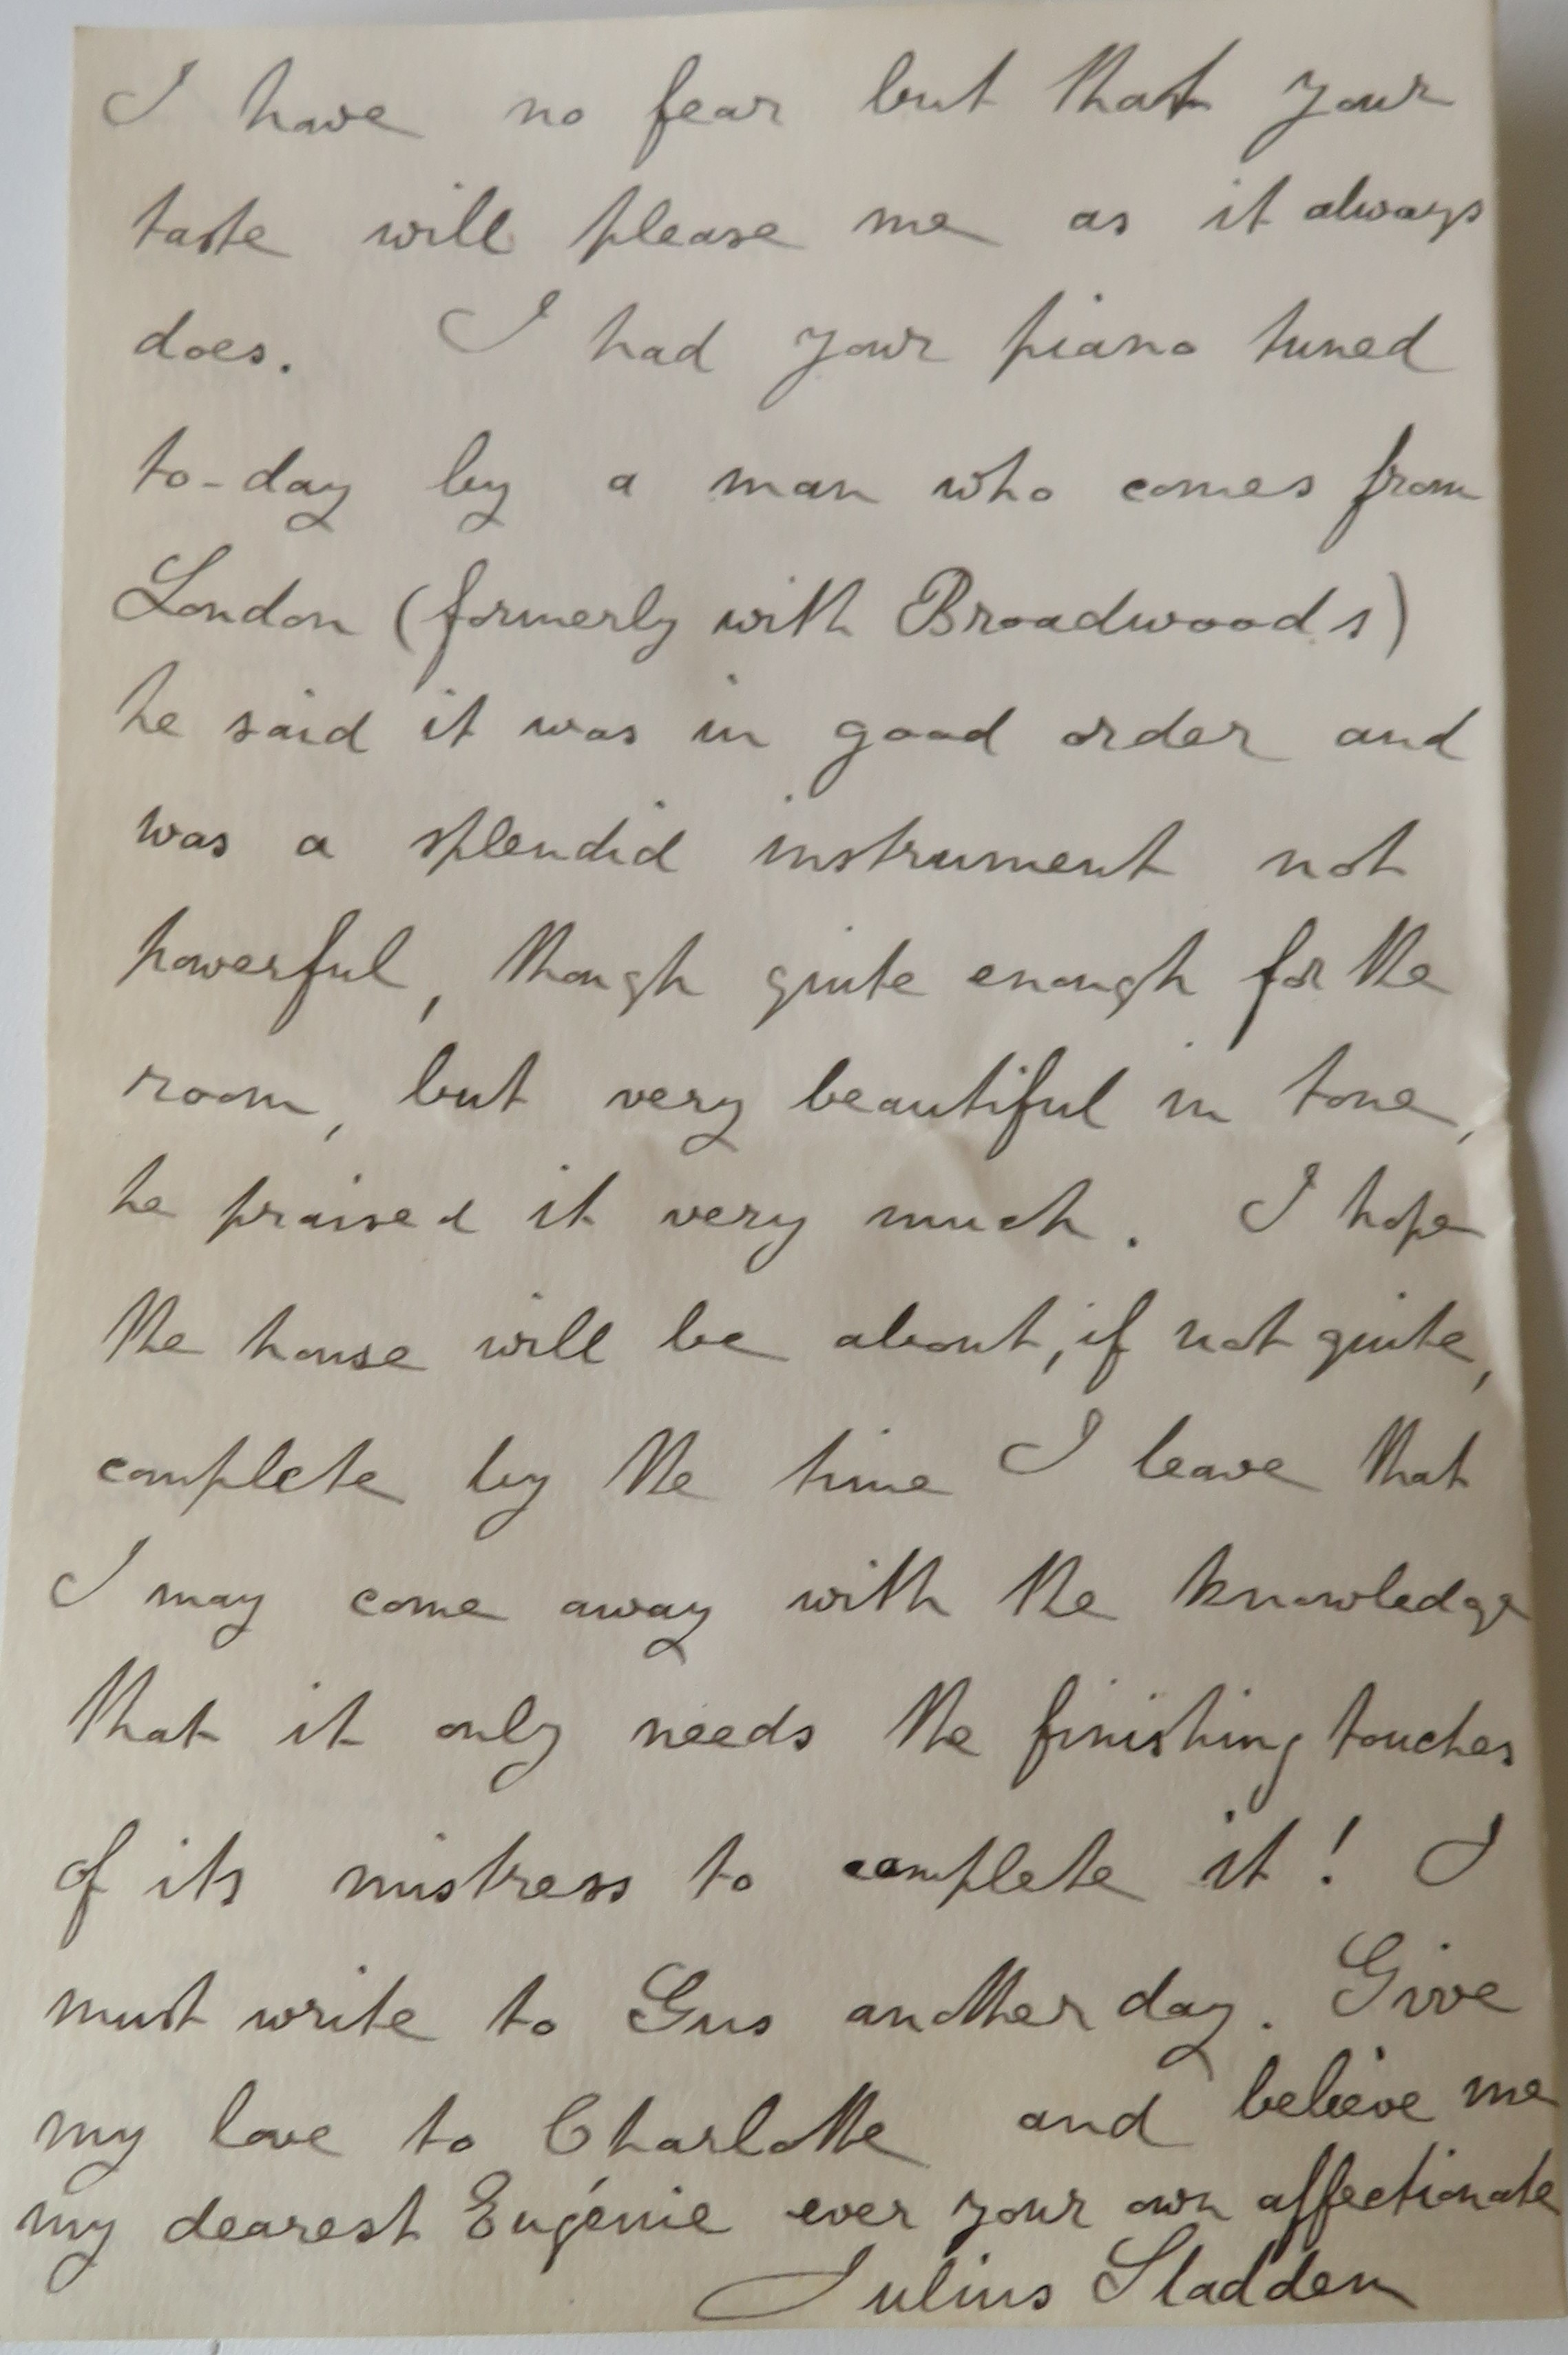 I have no fear but that your
taste will please me as it always
does. I had your piano tuned
to-day by a man who comes from
London (formerly with Broadwoods)
he said it was in good order and
was a splendid instrument not
powerful, though quite enough for the
room, but very beautiful in tone,
he praised it very much. I hope
the house will be about, if not quite,
complete by the time I leave that
I may come away with the knowledge
that it only needs the finishing touches
of its mistress to complete it! I
must write to Gus another day. Give
my love to Charlotte and believe me
my dearest Eugénie ever your own affectionate
Julius Sladden